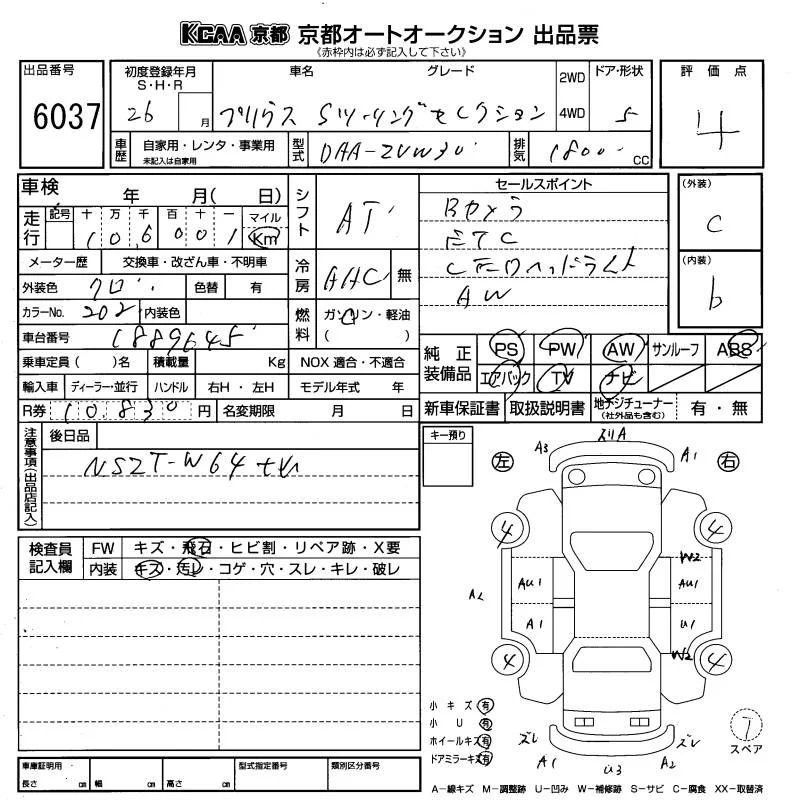 KCAA 京都 京都オートオークション 出品票
《赤枠内は必ず記入して下さい》
出品番号
6037
初度登録年月
S・H・R
26 月
車名 グレード
プリウス Sツーリングセレクション
2WD
4WD
ドア・形状
5
評価点
4
車歴
自家用・レンタ・事業用
未記入は自家用
型式
DAA-ZVW30
排気
1800 CC
車検 年 月( 日)
走行
記号 十 万 千 百 十 一 マイル
1 0 6 0 0 1 Km
メーター歴 交換車・改ざん車・不明車
外装色 クロ 色替 有
カラーNo. 202 内装色
車台番号 1889645
乗車定員( )名 積載量 Kg NOX 適合・不適合
輸入車 ディーラー・並行 ハンドル 右H・左H モデル年式 年
R券 10,830 円 名変期限 月 日
シフト
AT
冷房
AAC 無
燃料
ガソリン・軽油
( )
セールスポイント
Bカメラ
ETC
LEDヘッドライト
AW
(外装)
C
(内装)
b
純正装備品
PS PW AW サンルーフ ABS
エアバック TV ナビ
新車保証書 取扱説明書 地デジチューナー
(社外品も含む)
有・無
注意事項(出品店記入)
後日品
NSZT-W64ナビ
検査員記入欄
FW キズ・飛石・ヒビ割・リペア跡・X要
内装 キズ・汚レ・コゲ・穴・スレ・キレ・破レ
車庫証明用
長さ cm 幅 cm 高さ cm
型式指定番号
類別区分番号
キー預り
左
右
A3
スリA
A1
4
4
W2
AU1
AU1
A2
A1
U1
W2
4
4
小キズ 有
小U 有
ホイールキズ 有
ドアミラーキズ 有
ズレ
A1
U3
A2
ズレ
スペア
A-線キズ M-調整跡 U-凹み W-補修跡 S-サビ C-腐食 XX-取替済